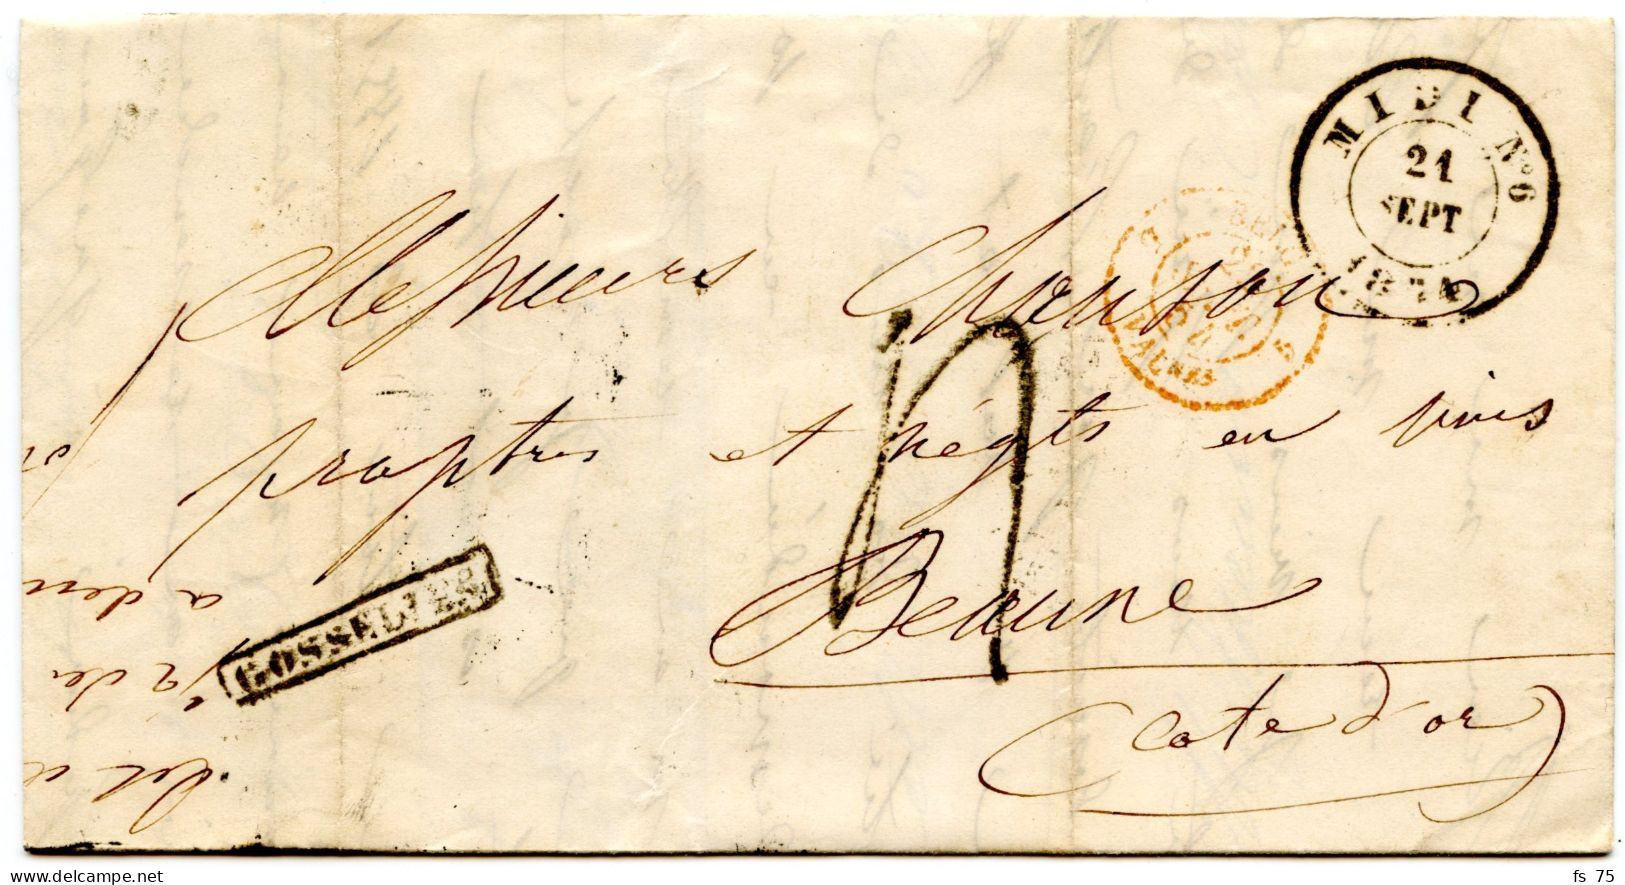 MIDI N°6
21
SEPT
1854
BELG.
Messieurs Chonson
proptres et négts en vins
Beaune
Cote d'or
GOSSELIES
a den
delcampe.net
fs_75